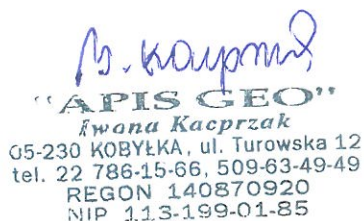 "APIS GEO"
Iwona Kacprzak
05-230 KOBYŁKA, ul. Turowska 12
tel. 22 786-15-66, 509-63-49-49
REGON 140870920
NIP 113-199-01-85